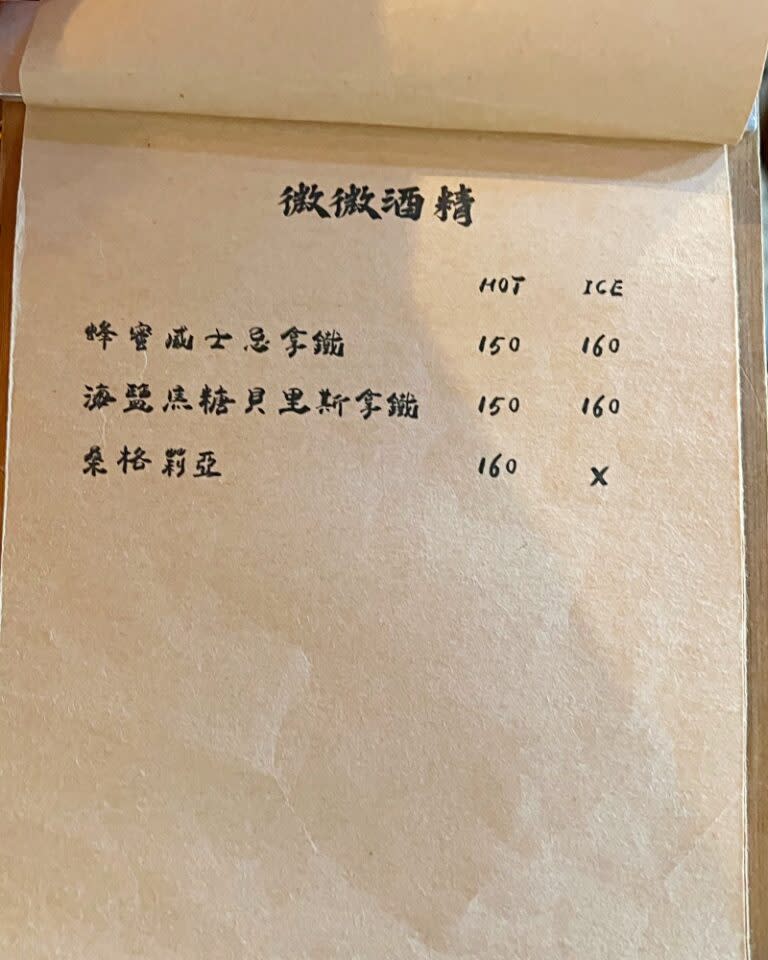 微微酒精
HOT ICE
蜂蜜威士忌拿鐵 150 160
海鹽焦糖貝里斯拿鐵 150 160
桑格莉亞 160 X